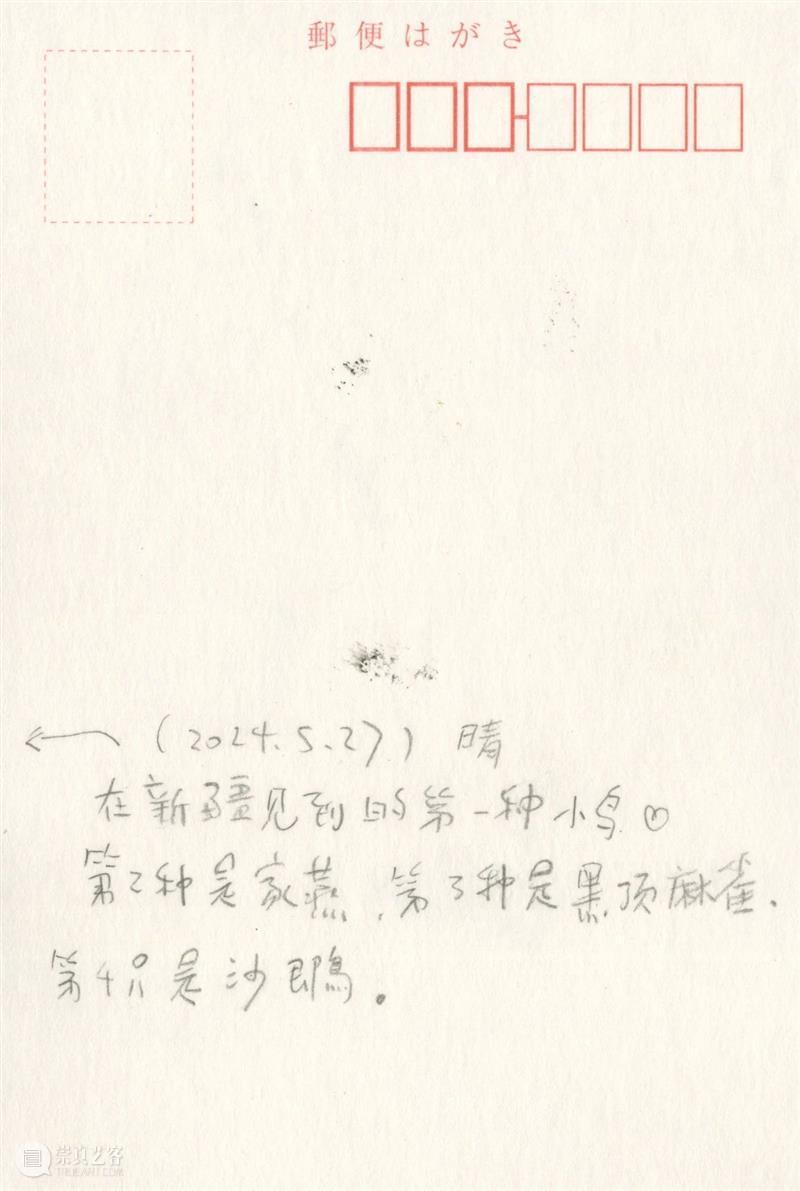 郵便はがき
← (2024.5.27) 晴
在新疆见到的第一种小鸟♡
第2种是家燕,第3种是黑顶麻雀.
第4只是沙即鳥。
崇真艺客
TRUEART.COM